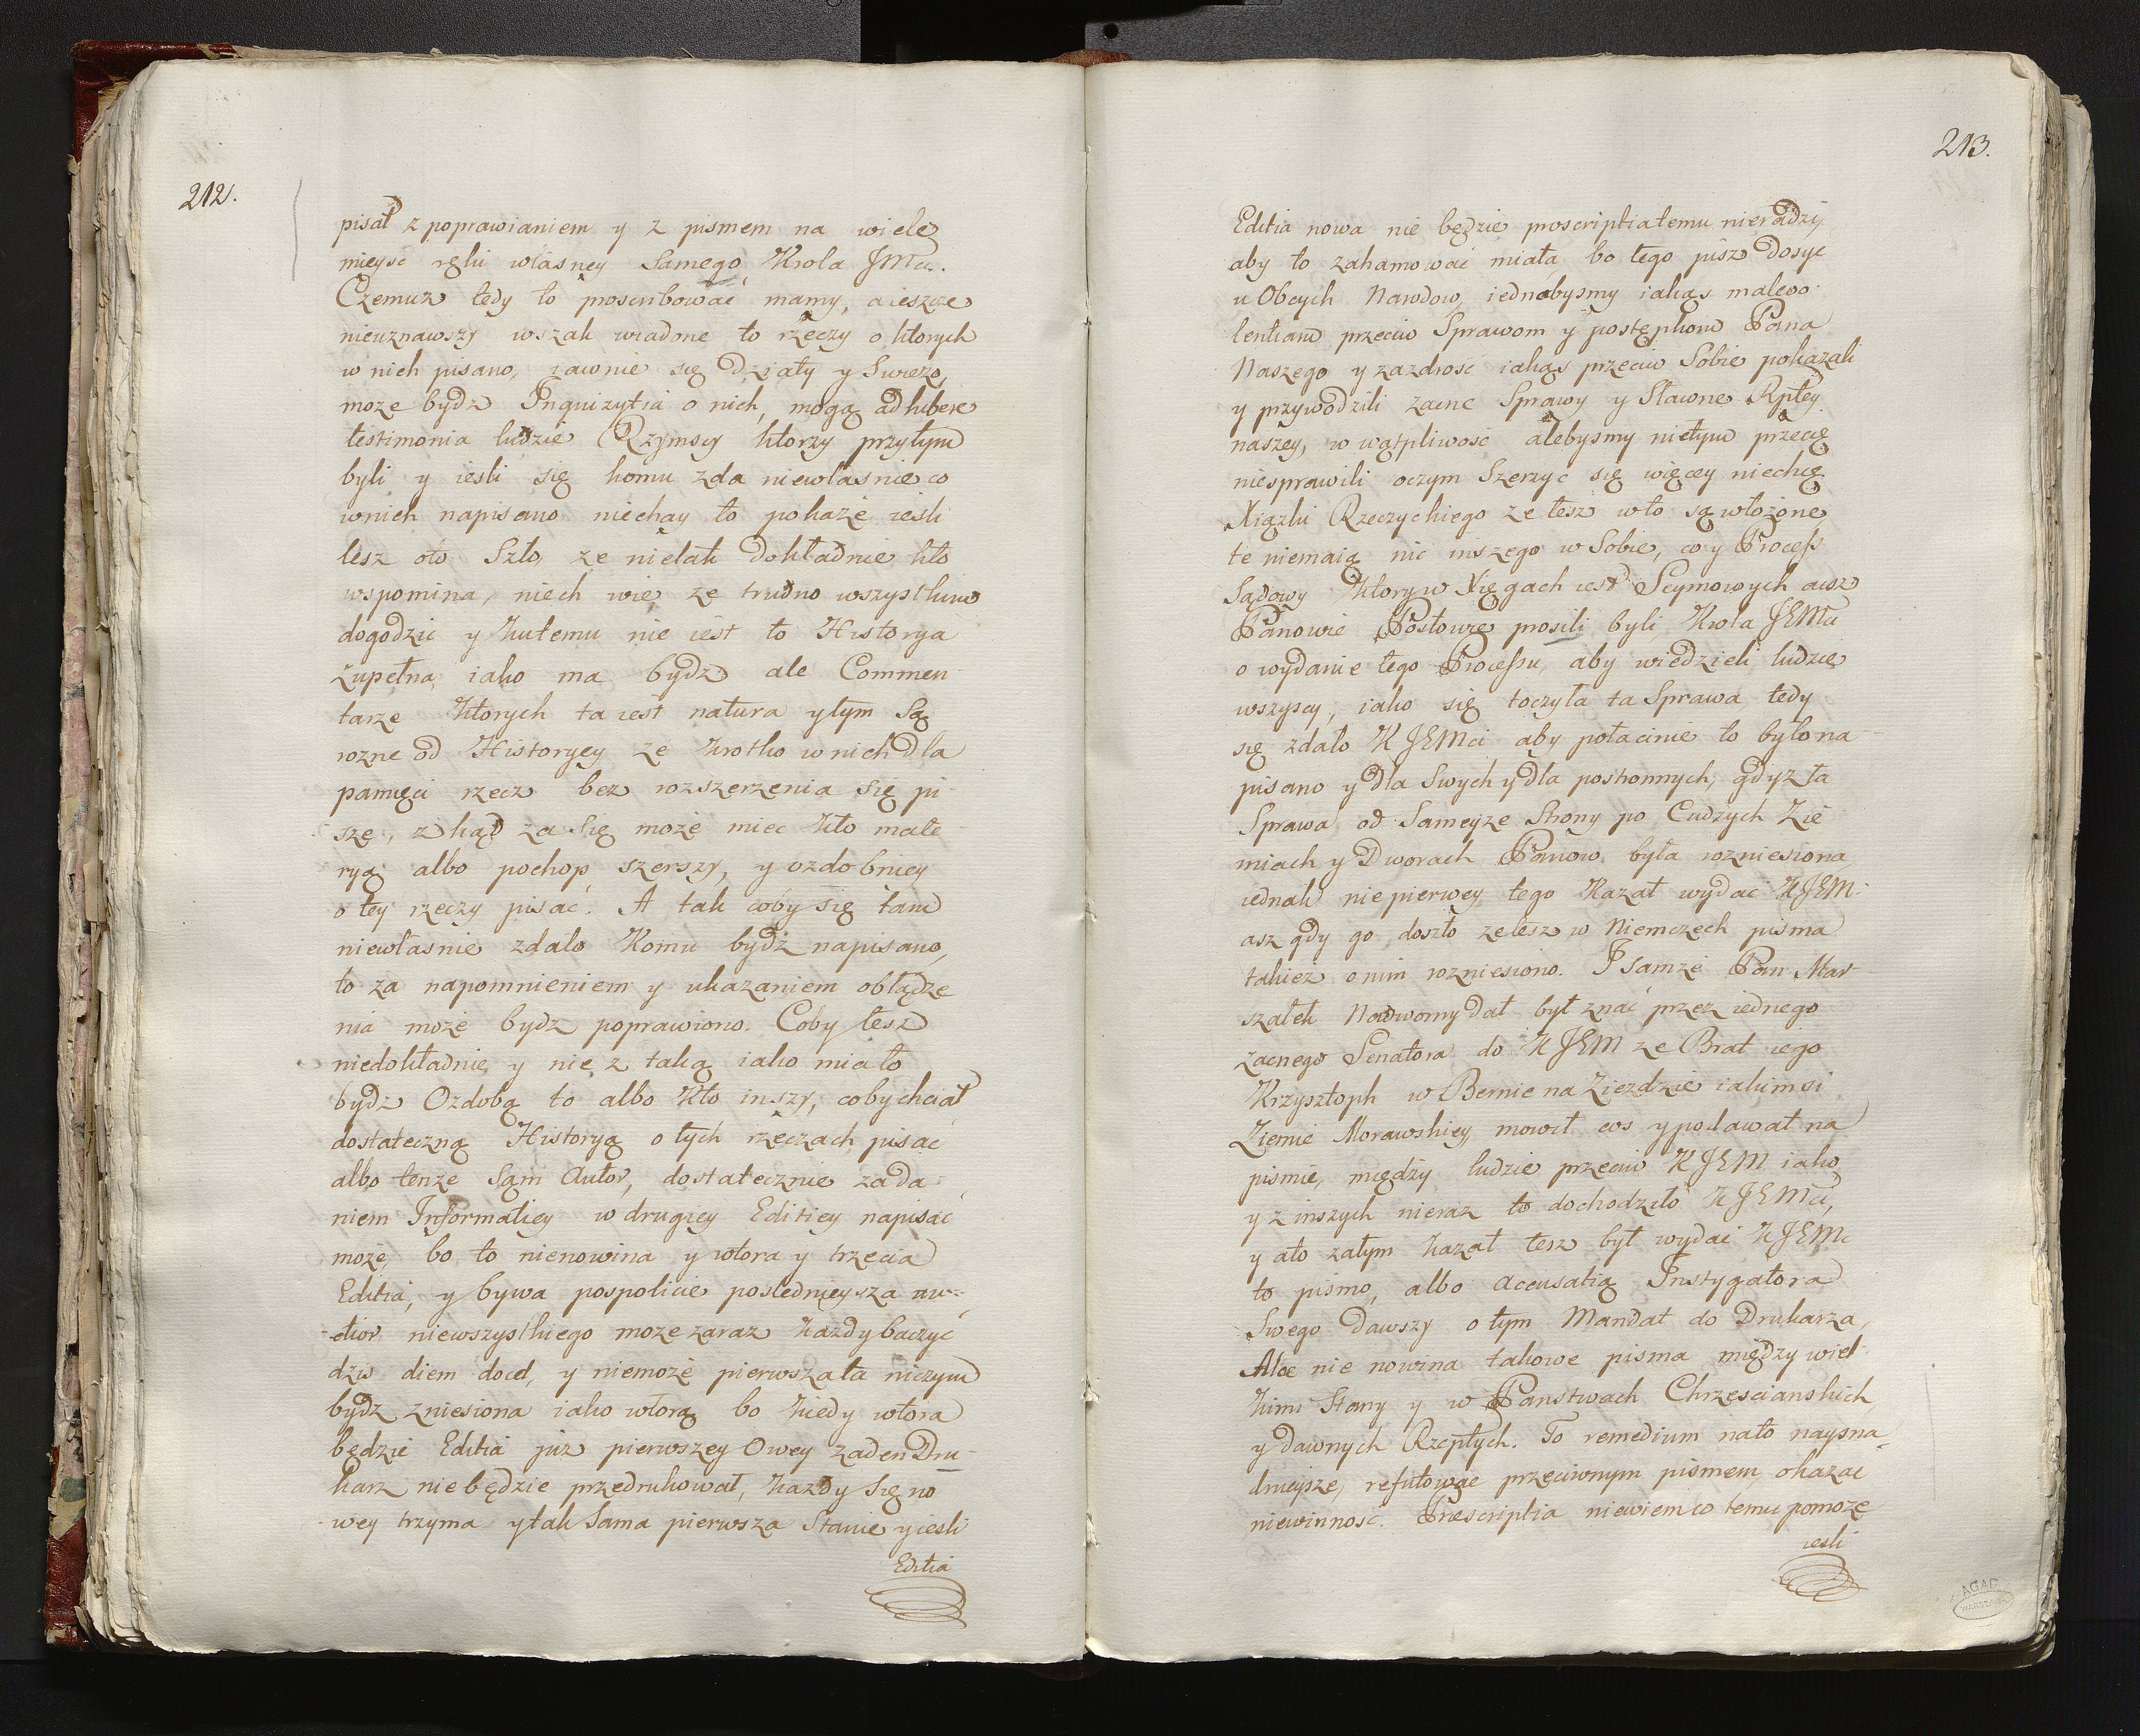 212.
pisał z poprawianiem y z pismem na wiele
mieysc ręku własney Samego Krola JMci.
Czemuz tedy to proscribować mamy, a ieszcze
nieuznawszy wszak wiadone to rzeczy o ktorych
w nich pisano, iawnie się działy y Swiezo,
może bydz Inquizytia o nich, mogą adhibere
testimonia ludzie Rzymscy ktorzy przytym
byli y iesli się komu zda niewłasnie co
wnich napisano niechay to pokaże iesli
tesz oto Szło, ze nietak dokładnie kto
wspomina, niech wie ze trudno wszystkim
dogodzic y kutemu nie iest to Historya
zupełna iako ma bydz ale Commen
tarze ktorych ta iest natura ytym Są
rozne od Historyey ze krotko w nich dla
pamięci rzecz bez rozszerzenia się pi
szę, zkąd za się może miec kto mate
ryą albo pochop szerszy, y ozdobniey
o tey rzeczy pisać. A tak coby się tam
niewłasnie zdało Komu bydź napisano,
to za napomnieniem y ukazaniem obłądze
nia może bydz poprawiono. Coby tesz
niedokładnie y nie z taką iako miało
bydz Ozdobą to albo Kto inszy, coby chciał
dostateczną Historyą o tych rzeczach pisać
albo tenze Sąm Autor, dostatecznie zada
niem Informatiey w drugiey Editiey napisać
może, bo to nienowina y wtora y trzecia
Editia, y bywa pospolicie posledniejsza au-
ctior niewszystkiego moze zaraz każdy baczyć
dzw diem docet, y niemoże pierwszata niczym
bydz zniesiona iako wtorą bo kiedy wtora
będzie Editia już pierwszey Owey zaden Dru-
karz nie będzie przedrukował, każdy Się no
wey trzyma ytak Sama pierwsza Stanie y iesli
Editia
213.
Editia nowa nie będzie proscriptiatemu nieradzi
aby to zahamować miała bo tego pisz dosyc
u Obcych Narodow, iednobysmy iakąs malevo
lentiam przeciw Sprawom y postępkom Pana
Naszego y zazdrość iakąs przeciw Sobie pokazali
y przywodzili zacne Sprawy y Sławne Rptey
naszey, w wątpliwość alebysmy nietym przecię
niesprawili oczym Szerzyć się więcey niechcę.
Xiązki Rzeczyckiego ze tesz wto są włożone
te niemaią nic inszego w Sobie, co y Process
Sądowy Ktory w Xięgach iest Seymowych awsz
Panowie Posłowie prosili byli Krola JEMci
o wydanie tego Processu, aby wiedzieli ludzie
wszyscy, iako się toczyła ta Sprawa tedy
się zdało K JEMci aby połacinie to było na
pisano y dla Swych y dla postronnych, gdyz ta
Sprawa od Sameyze Strony po Cudzych Zie
miach y Dworach Panow, była rozniesiona
iednak niepierwey tego Kazał wydac KJEM
asz gdy go doszło ze tesz w Niemczech pisma
takiez o nim rozniesiono. I samze Pan Mar
szałek Nadworny dał był znać przez iednego
zacnego Senatora do KJEM ze Brat iego
Krzysztoph w Bernie na Ziezdzie iakimsi
Ziemie Morawskiey mowił cos ypodawał na
pismie, między ludzie przeciw KJEM iako
y z inszych nieraz to dochodziło KJEMci,
y ato zatym kazał tesz był wydać KJEMc
to pismo, albo accusatią Instygatora
Swego dawszy o tym Mandat do Drukarza,
Alec nie nowina takowe pisma między wiel
kimi Stany y w Państwach Chrzescianskich
y dawnych Rzeptych. To remedium nato naysna
dnieysze, refutowąc przeciwnym pismem okazać
niewinnosc. Proscriptia niewiem co temu pomoże
iesli
AGAD
WARSZAWA